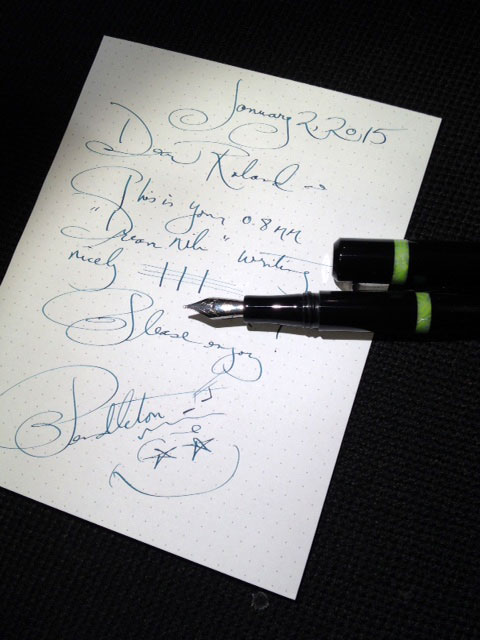 January 2, 2015
Dear Roland
This is your 0.8 mm
"Dream Nib" writing
nicely
Please enjoy
Pendleton